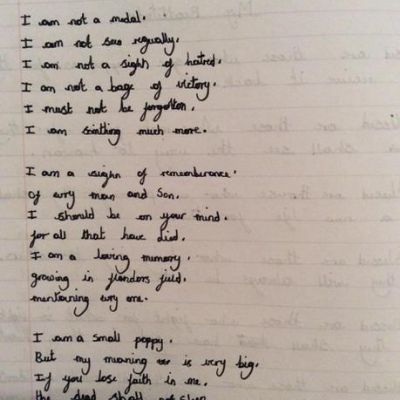 I am not a medal.
I am not see regually.
I am not a sighn of hatred.
I am not a bage of victory.
I must not be forgotton.
I am somthing much more.
I am a sieghn of rememberance.
Of evry man and Son.
I should be on your mind.
for all that have died.
I am a loving memory.
growing in flanders field.
mentioning evry one.
I am a small poppy.
But my meaning is very big.
If you lose faith in me.
the dead shall not sleep